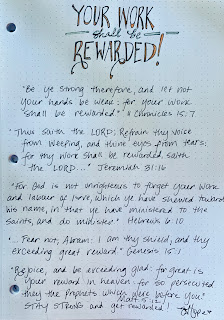 YOUR WORK
shall be
REWARDED!
"Be ye strong therefore, and let not
your hands be weak: for your work
shall be rewarded." II Chronicles 15:7
"Thus saith the LORD; Refrain thy voice
from weeping, and thine eyes from tears:
for thy work shall be rewarded, saith
the LORD..." Jeremiah 31:16
"For God is not unrighteous to forget your work
and labour of love, which ye have shewed toward
his name, in that ye have ministered to the
saints, and do minister." Hebrews 6:10
"...Fear not, Abram: I am thy shield, and thy
exceeding great reward." Genesis 15:1
"Rejoice, and be exceeding glad: for great is
your reward in heaven: for so persecuted
they the prophets which were before you."
Matt 5:12
STAY STRONG and get rewarded!